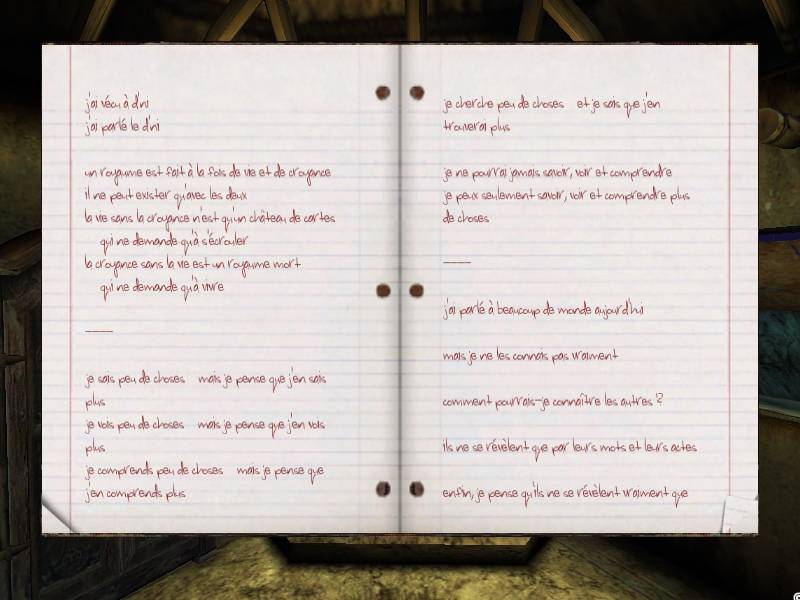 j'ai vécu à d'ni
j'ai parlé le d'ni
un royaume est fait à la fois de vie et de croyance
il ne peut exister qu'avec les deux
la vie sans la croyance n'est qu'un château de cartes
qui ne demande qu'à s'écrouler
la croyance sans la vie est un royaume mort
qui ne demande qu'à vivre
____
je sais peu de choses mais je pense que j'en sais
plus
je vois peu de choses mais je pense que j'en vois
plus
je comprends peu de choses mais je pense que
j'en comprends plus
je cherche peu de choses et je sais que j'en
trouverai plus
je ne pourrai jamais savoir, voir et comprendre
je peux seulement savoir, voir et comprendre plus
de choses
____
j'ai parlé à beaucoup de monde aujourd'hui
mais je ne les connais pas vraiment
comment pourrais-je connaître les autres ?
ils ne se révèlent que par leurs mots et leurs actes
enfin, je pense qu'ils ne se révèlent vraiment que